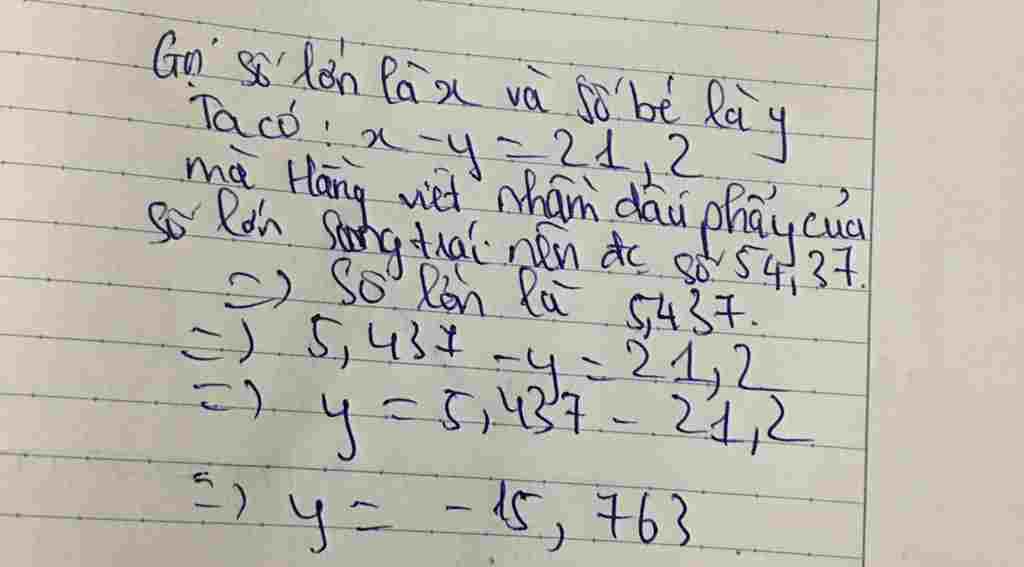 Gọi số lớn là x và số bé là y
Ta có: x - y = 21,2
mà Hằng viết nhầm dấu phẩy của
số lớn sang trái nên đc số 54,37.
=> Số lớn là 5,437.
=> 5,437 - y = 21,2
=> y = 5,437 - 21,2
=> y = - 15,763